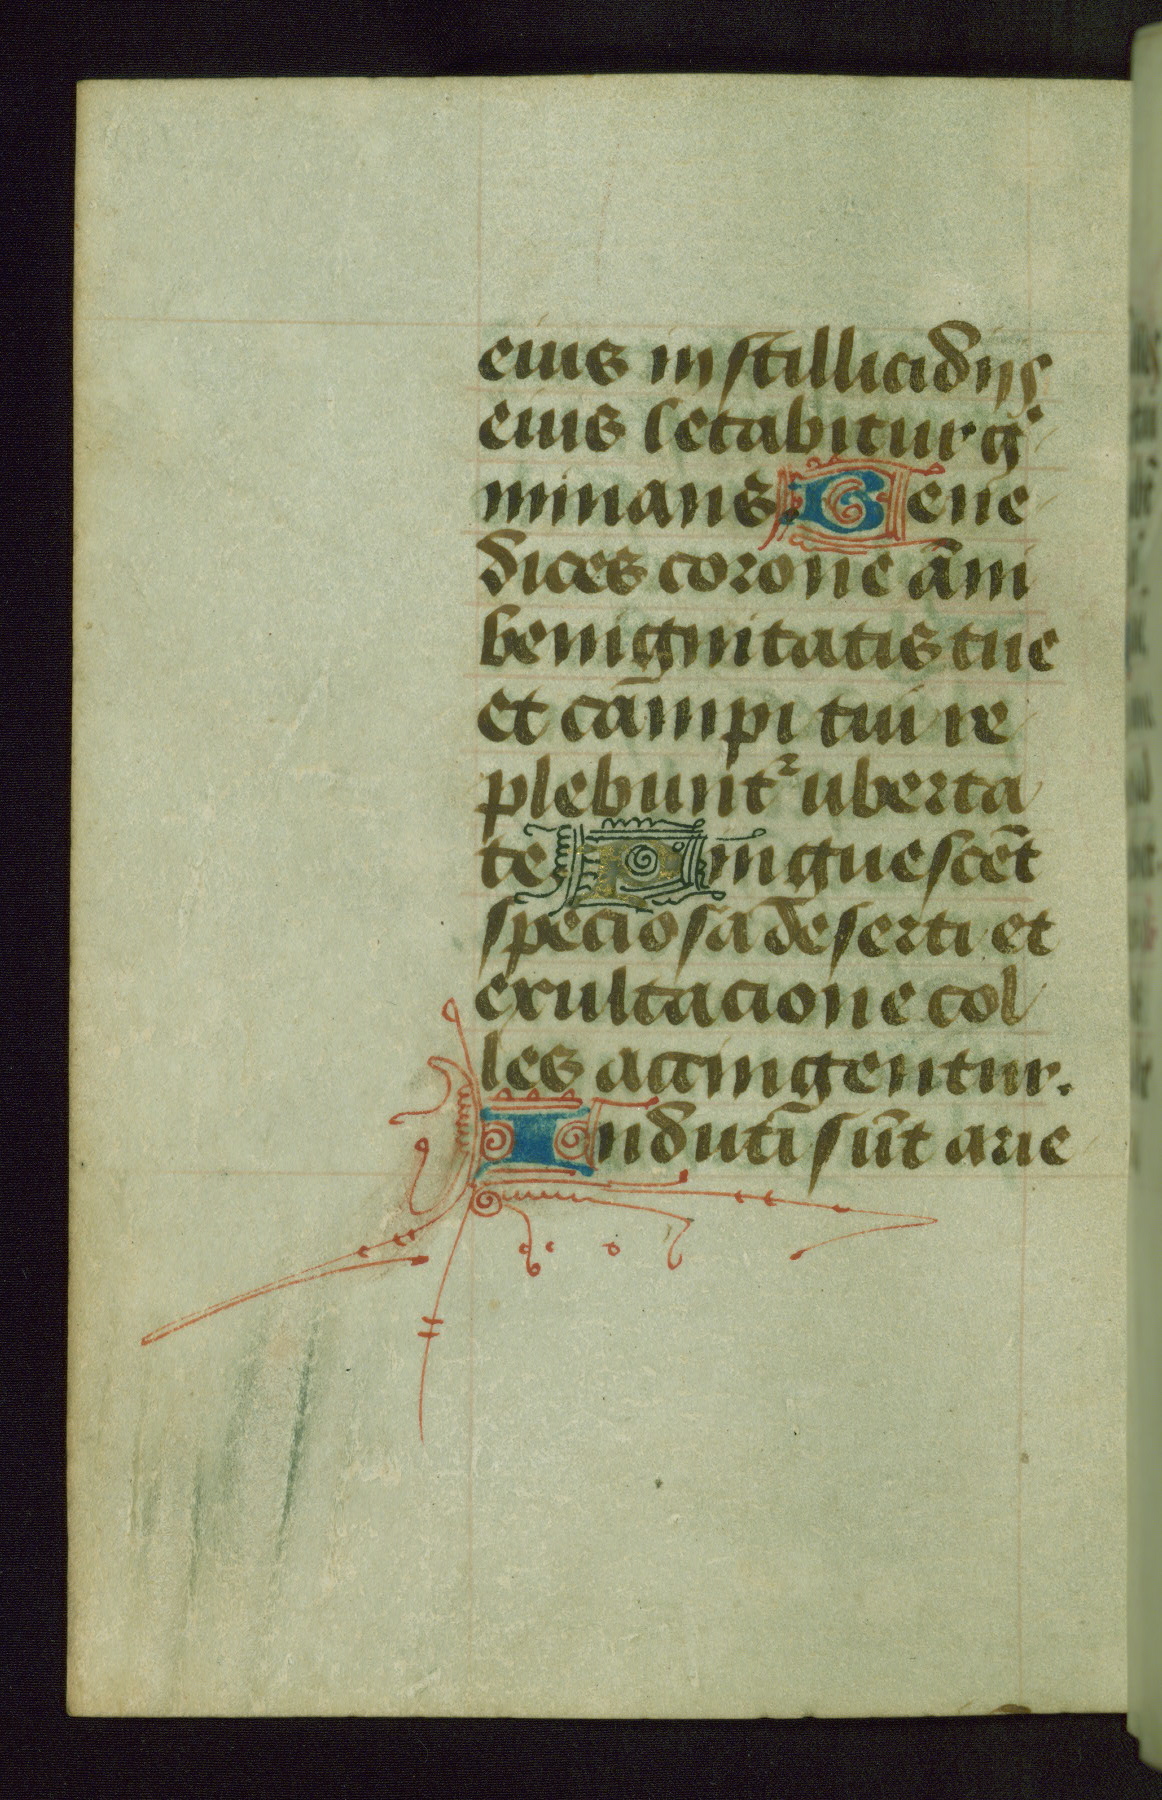 eius in stillicidijs
eius letabitur g'
minans. Bene
dices corone āni
benignitatis tue
et cāmpi tui re
plebunt᷑ uberta
te Pinguescēt
speciosa deserti et
exultacione col
les accingentur.
Induti sūt arie